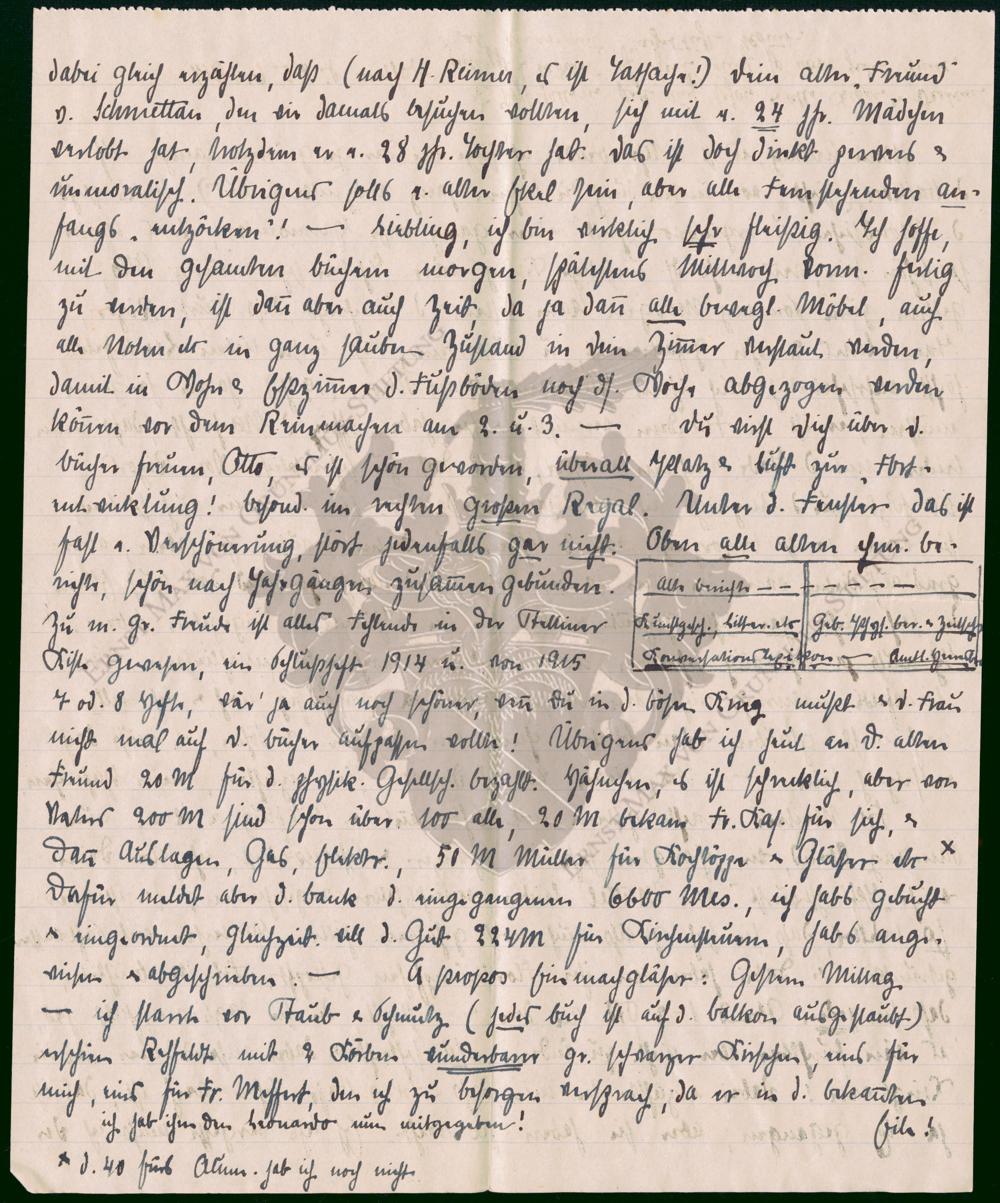 dabei gleich erzählen, daß (nach H. Reimer, es ist Tatsache!) Dein alter „Freund“
v. Schmettau, den wir damals besuchen wollten, sich mit e. 24 jhr. Mädchen
verlobt hat, trotzdem er e. 28 jhr. Tochter hat. Das ist doch direkt pervers &
unmoralisch. Übrigens solls e. alter Ekel sein, aber alle Fernstehenden an-
fangs „entzücken“! — Liebling, ich bin wirklich sehr fleißig. Ich hoffe,
mit den gesamten Büchern morgen, spätestens Mittwoch Vorm. fertig
zu werden, ist dann aber auch Zeit, da ja dann alle bewegl. Möbel, auch
alle Noten etc in ganz saubern Zustand in dein Zimmer verstaut werden,
damit in Wohn & Eßzimmer d. Fußböden noch ds. Woche abgezogen werden
können vor dem Reinmachen am 2. u. 3. — Du wirst Dich über d.
Bücher freuen, Otto, es ist schön geworden, überall Platz & Luft zur „Fort-
entwicklung! besond. im rechten großen Regal. Unter d. Fenster das ist
fast e. Verschönerung, stört jedenfalls gar nicht. Oben alle alten chem. Be-
richte, schön nach Jahrgängen zusammen gebunden.
Alte Berichte – – – – – – –
Zu m. gr. Freude ist alles Fehlende in der Stettiner
Kunstgesch., Litter. etc Geb. Phys. Ber. & Zeitsch
Kiste gewesen, ein Schlußheft 1914 u. von 1915
Konversationslexikon —
7 od. 8 Hefte, wär' ja auch noch schöner, wenn Du in d. bösen Krieg mußt & d. Frau
nicht mal auf d. Bücher aufpassen wollte! Übrigens hab ich heut an D. alten
Freund 20 M für d. physik. Gesellsch. bezahlt. Hähnchen, es ist schrecklich, aber von
Vaters 200 M sind schon über 100 alle, 20 M bekam Fr. Kas. für sich, &
dann Auslagen, Gas, Elektr., 50 M Müller für Kochtöppe & Gläser etc x
Dafür meldet aber d. Bank d. eingegangenen 6600 Mes., ich habs gebucht
& eingeordnet, gleichzeit. will d. Gut 224M für Kirchensteuern, habs ange-
wiesen & abgeschrieben. — A propos Einmachgläser: Gestern Mittag
— ich starrte vor Staub & Schmutz (jedes Buch ist auf d. Balkon ausgestaubt)
erschien Rehfeldt mit 2 Körben wunderbarer gr. schwarzer Kirschen, eins für
mich, eins für Fr. Meffert, den ich zu besorgen versprach, da er in d. bekannten
Eile!
ich hab ihm den Leonardo nun mitgegeben!
x d. 40 fürs Alum. hab ich noch nicht